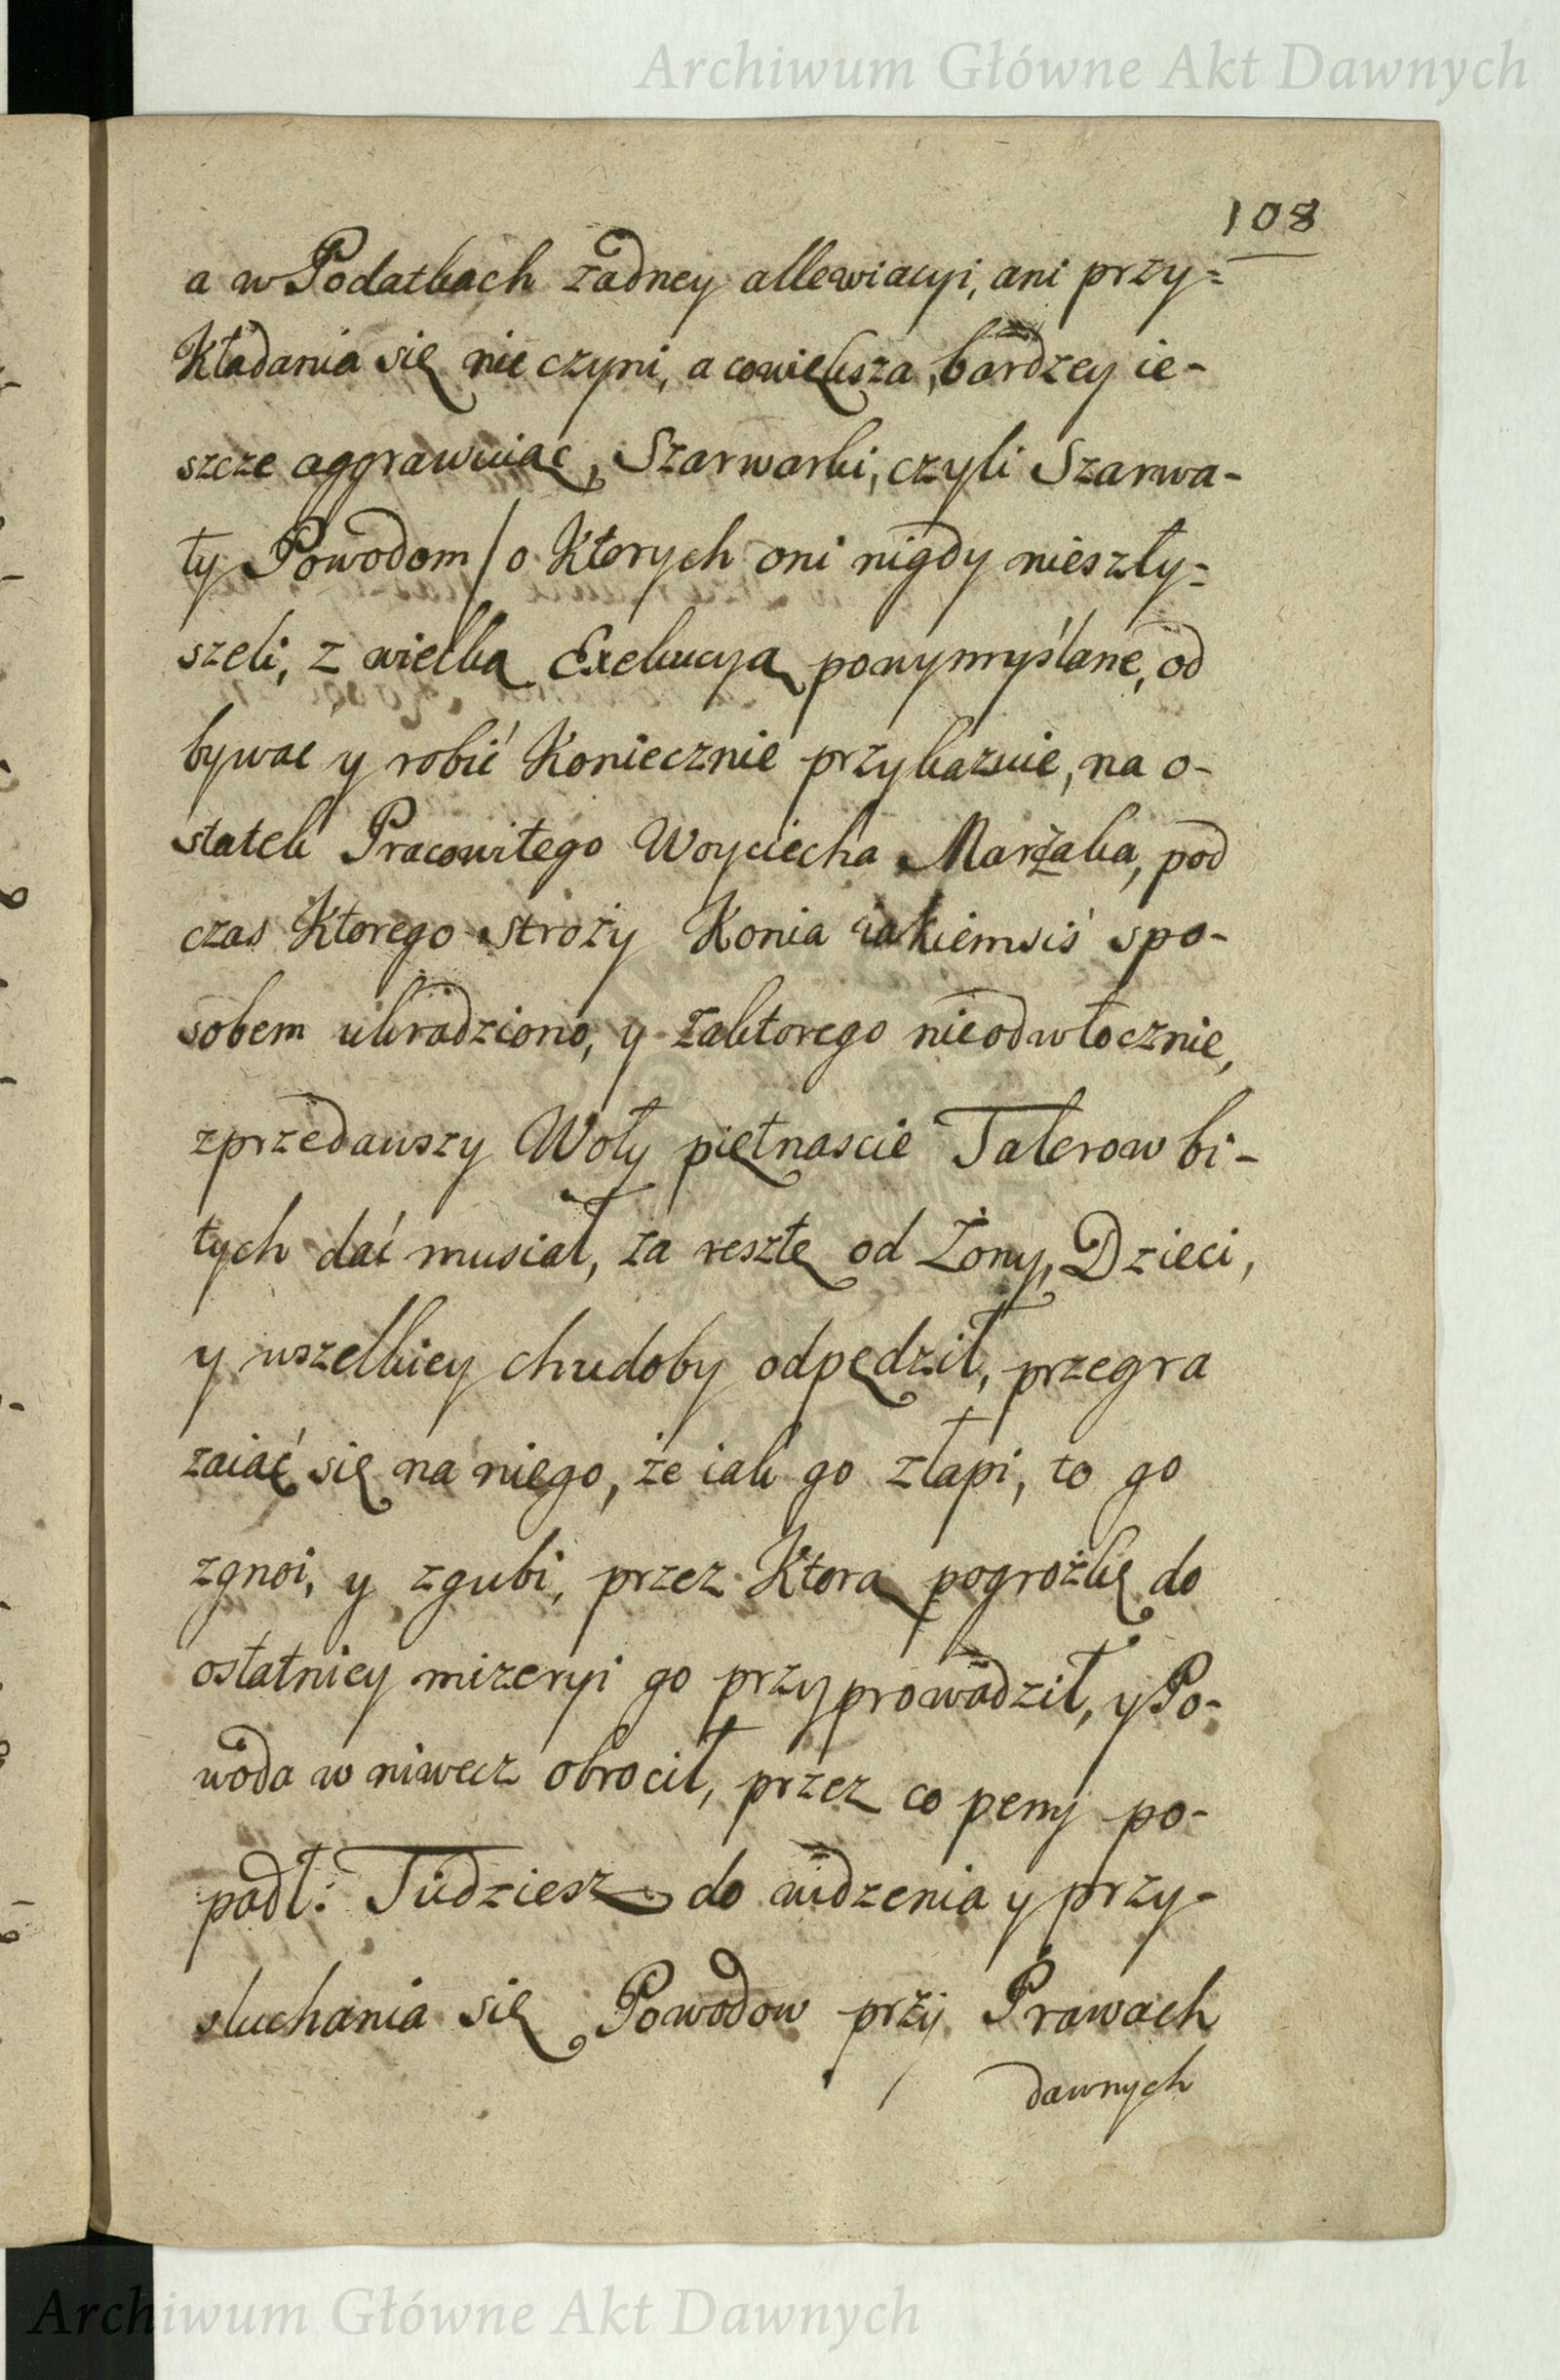 Archiwum Główne Akt Dawnych
108
a w Podatkach żadney allewiacyi, ani przy=
kładania się nie czyni, a cowiększa, bardzey ie-
szcze aggrawuiąc, Szarwarki, czyli Szarwa-
ty Powodom / o Ktorych oni nigdy nieszły=
szeli, z wielką Exekucyą powymyślane, od
bywać y robić Koniecznie przykazuie, na o-
statek Pracowitego Woyciecha Marżaka, pod
czas Ktorego stroży Konia iakiemsiś spo-
sobem ukradziono, y zaktorego nieodwłocznie,
zprzedawszy Woły piętnascie Talerow bi-
tych dać musiał, za resztę od Żony, Dzieci,
y wszelkiey chudoby odpędził, przegra
zaiąć się na niego, że iak go złapi, to go
zgnoi, y zgubi, przez Ktorą pogrożkę do
ostatniey mizeryi go przyprowadził, y Po-
woda w niwecz obrocił, przez co peny po-
padł: Tudziesz do widzenia y przy-
słuchania się Powodow przy Prawach
dawnych
Archiwum Główne Akt Dawnych